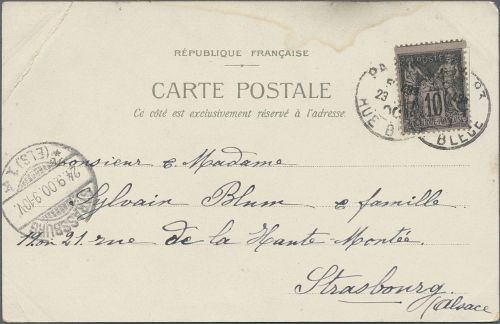 RÉPUBLIQUE FRANÇAISE
CARTE POSTALE
Ce côté est exclusivement réservé à l'adresse.
10
RUE BLEUE
STRASSBURG
(ELS.) 1
24.9.00.9-10V.
Monsieur & Madame
Sylvain Blum & famille
21. rue de la Haute Montée.
Strasbourg.
(Alsace